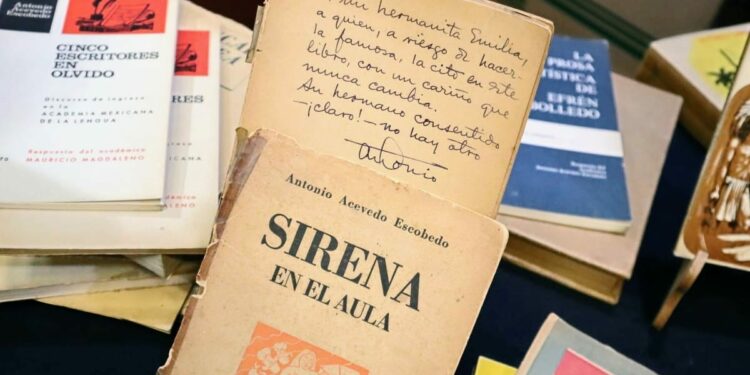 Antonio Acevedo Escobedo
CINCO
ESCRITORES
EN
OLVIDO
Discurso de ingreso
en la
ACADEMIA MEXICANA
DE LA LENGUA
Respuesta del académico
MAURICIO MAGDALENO
RES
académico
MAGDALENO
mi hermanita Emilia,
a quien, a riesgo de hacer-
la famosa, la cito en este
libro, con un cariño que
nunca cambia.
Su hermano consentido
—¡claro!— no hay otro
Antonio
Antonio Acevedo Escobedo
SIRENA
EN EL AULA
LA
PROSA
ÍSTICA DE
EFRÉN
OLLEDO